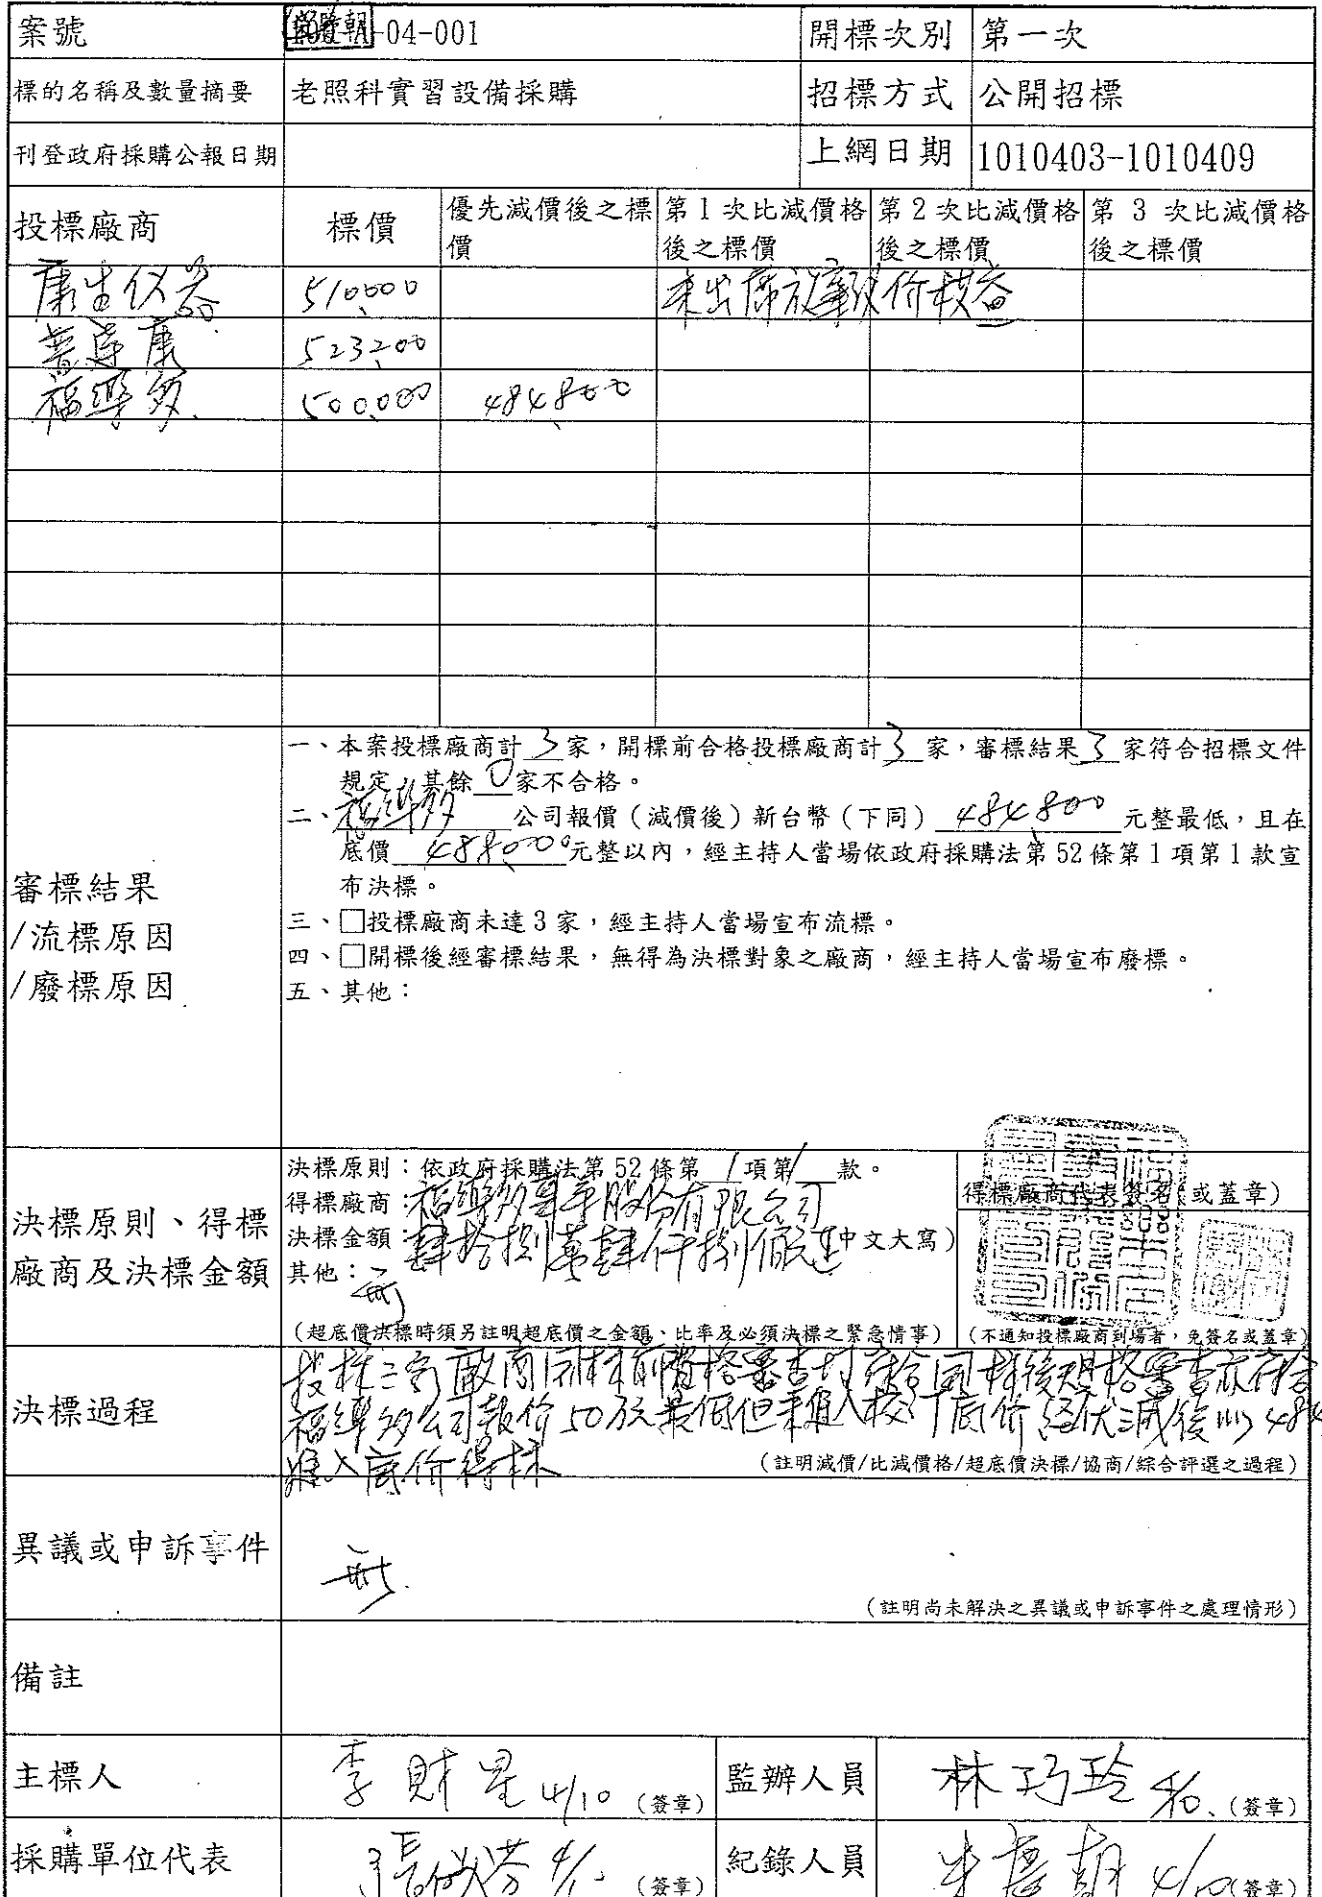 案號 -04-001 開標次別 第一次
標的名稱及數量摘要 老照科實習設備採購 招標方式 公開招標
刊登政府採購公報日期 上網日期 1010403-1010409
投標廠商 標價 優先減價後之標價 第1次比減價格後之標價 第2次比減價格後之標價 第3次比減價格後之標價
康生仪器 510,000 未出席放棄減价权益
普達康 523,200
福樂多 500,000 484,800
審標結果
/流標原因
/廢標原因
一、本案投標廠商計 3 家，開標前合格投標廠商計 3 家，審標結果 3 家符合招標文件
規定，其餘 0 家不合格。
二、福樂多 公司報價（減價後）新台幣（下同） 484,800 元整最低，且在
底價 488,000 元整以內，經主持人當場依政府採購法第52條第1項第1款宣
布決標。
三、□投標廠商未達3家，經主持人當場宣布流標。
四、□開標後經審標結果，無得為決標對象之廠商，經主持人當場宣布廢標。
五、其他：
決標原則、得標
廠商及決標金額
決標原則：依政府採購法第52條第 1 項第 1 款。
得標廠商：福樂多事業股份有限公司
決標金額：肆拾捌萬肆仟捌佰元 （中文大寫）
其他：無
（超底價決標時須另註明超底價之金額、比率及必須決標之緊急情事）
得標廠商代表簽名（或蓋章）
（不通知投標廠商到場者，免簽名或蓋章）
決標過程
投标三家廠商開标前資格審查均符合開标後規格審查亦符合
福樂多公司報价50万元最低但未進入底价 減後以484
進入底价得标
（註明減價/比減價格/超底價決標/協商/綜合評選之過程）
異議或申訴事件
無
（註明尚未解決之異議或申訴事件之處理情形）
備註
主標人 李財星 4/10 （簽章） 監辦人員 林巧玲 4/10 （簽章）
採購單位代表 （簽章） 紀錄人員 4/10 （簽章）